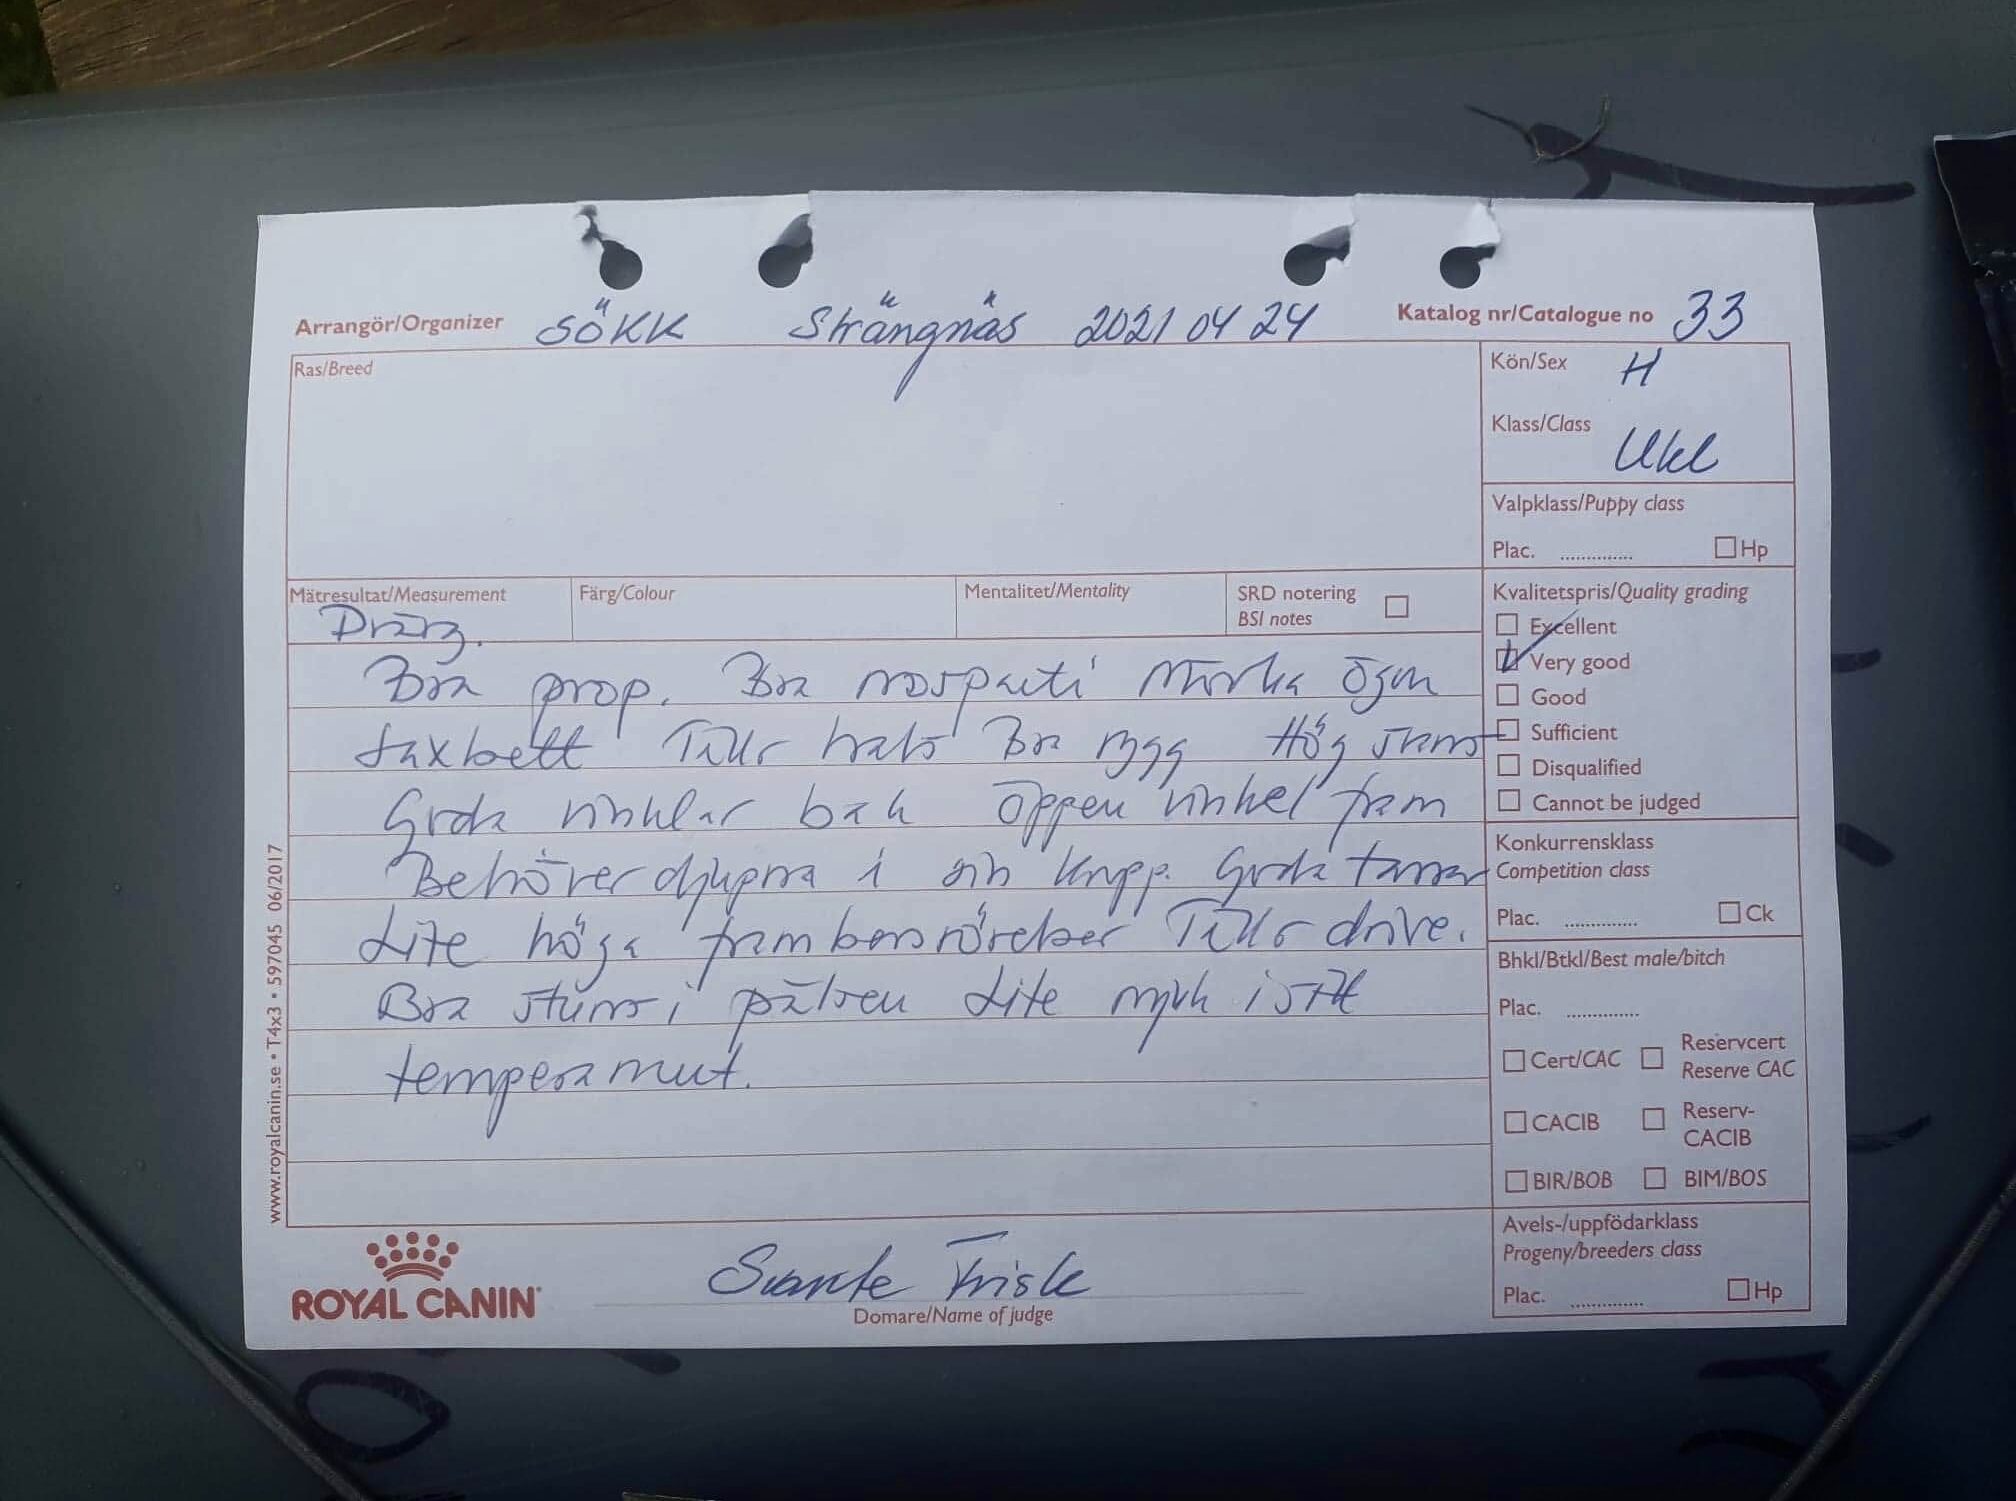 Arrangör/Organizer SÖKK Strängnäs 2021 04 24 Katalog nr/Catalogue no 33
Ras/Breed
Kön/Sex H
Klass/Class Ukl
Valpklass/Puppy class
Plac. .............. Hp
Mätresultat/Measurement
Färg/Colour
Mentalitet/Mentality
SRD notering
BSI notes
Kvalitetspris/Quality grading
Excellent
Very good
Good
Sufficient
Disqualified
Cannot be judged
Bra prop. Bra nosparti Mörka ögon
Saxbett Tillr hals Bra rygg Hög svans
Goda vinklar bak öppen vinkel fram
Behöver djupna i sin kropp. Goda tassar
Lite höga frambensrörelser Tillr drive.
Bra struns i pälsen Lite mjuk i sitt
temperament.
Konkurrensklass
Competition class
Plac. .............. Ck
Bhkl/Btkl/Best male/bitch
Plac. ..............
Cert/CAC
Reservcert
Reserve CAC
CACIB
Reserv-
CACIB
BIR/BOB
BIM/BOS
Avels-/uppfödarklass
Progeny/breeders class
Plac. .............. Hp
www.royalcanin.se • T4x3 • 597045 06/2017
ROYAL CANIN
Svante Frisk
Domare/Name of judge